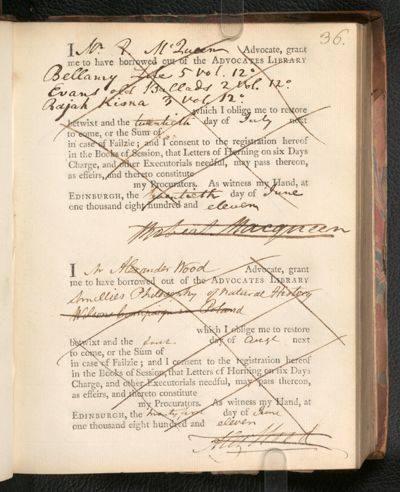 36.
I Mr R McQueen Advocate, grant
me to have borrowed out of the ADVOCATES LIBRARY
Bellamy Life 5 vol. 12°
Evans old Ballads 2 vol. 12°
Rajah Kisna 3 vol. 12°
which I oblige me to restore
betwixt and the twentieth day of July next
to come, or the Sum of
in case of Failzie; and I consent to the registration hereof
in the Books of Session, that Letters of Horning on six Days
Charge, and other Executorials needful, may pass thereon,
as effeirs, and thereto constitute
my Procurators. As witness my Hand, at
EDINBURGH, the day of June
one thousand eight hundred and eleven
Robert Macquean
I Mr Alexander Wood Advocate, grant
me to have borrowed out of the ADVOCATES LIBRARY
Smellies Philosophy of Natural History
Wilsons Campaign in Poland
which I oblige me to restore
betwixt and the day of Augt next
to come, or the Sum of
in case of Failzie; and I consent to the registration hereof
in the Books of Session, that Letters of Horning on six Days
Charge, and other Executorials needful, may pass thereon,
as effeirs, and thereto constitute
my Procurators. As witness my Hand, at
EDINBURGH, the day of June
one thousand eight hundred and eleven
Alexr Wood